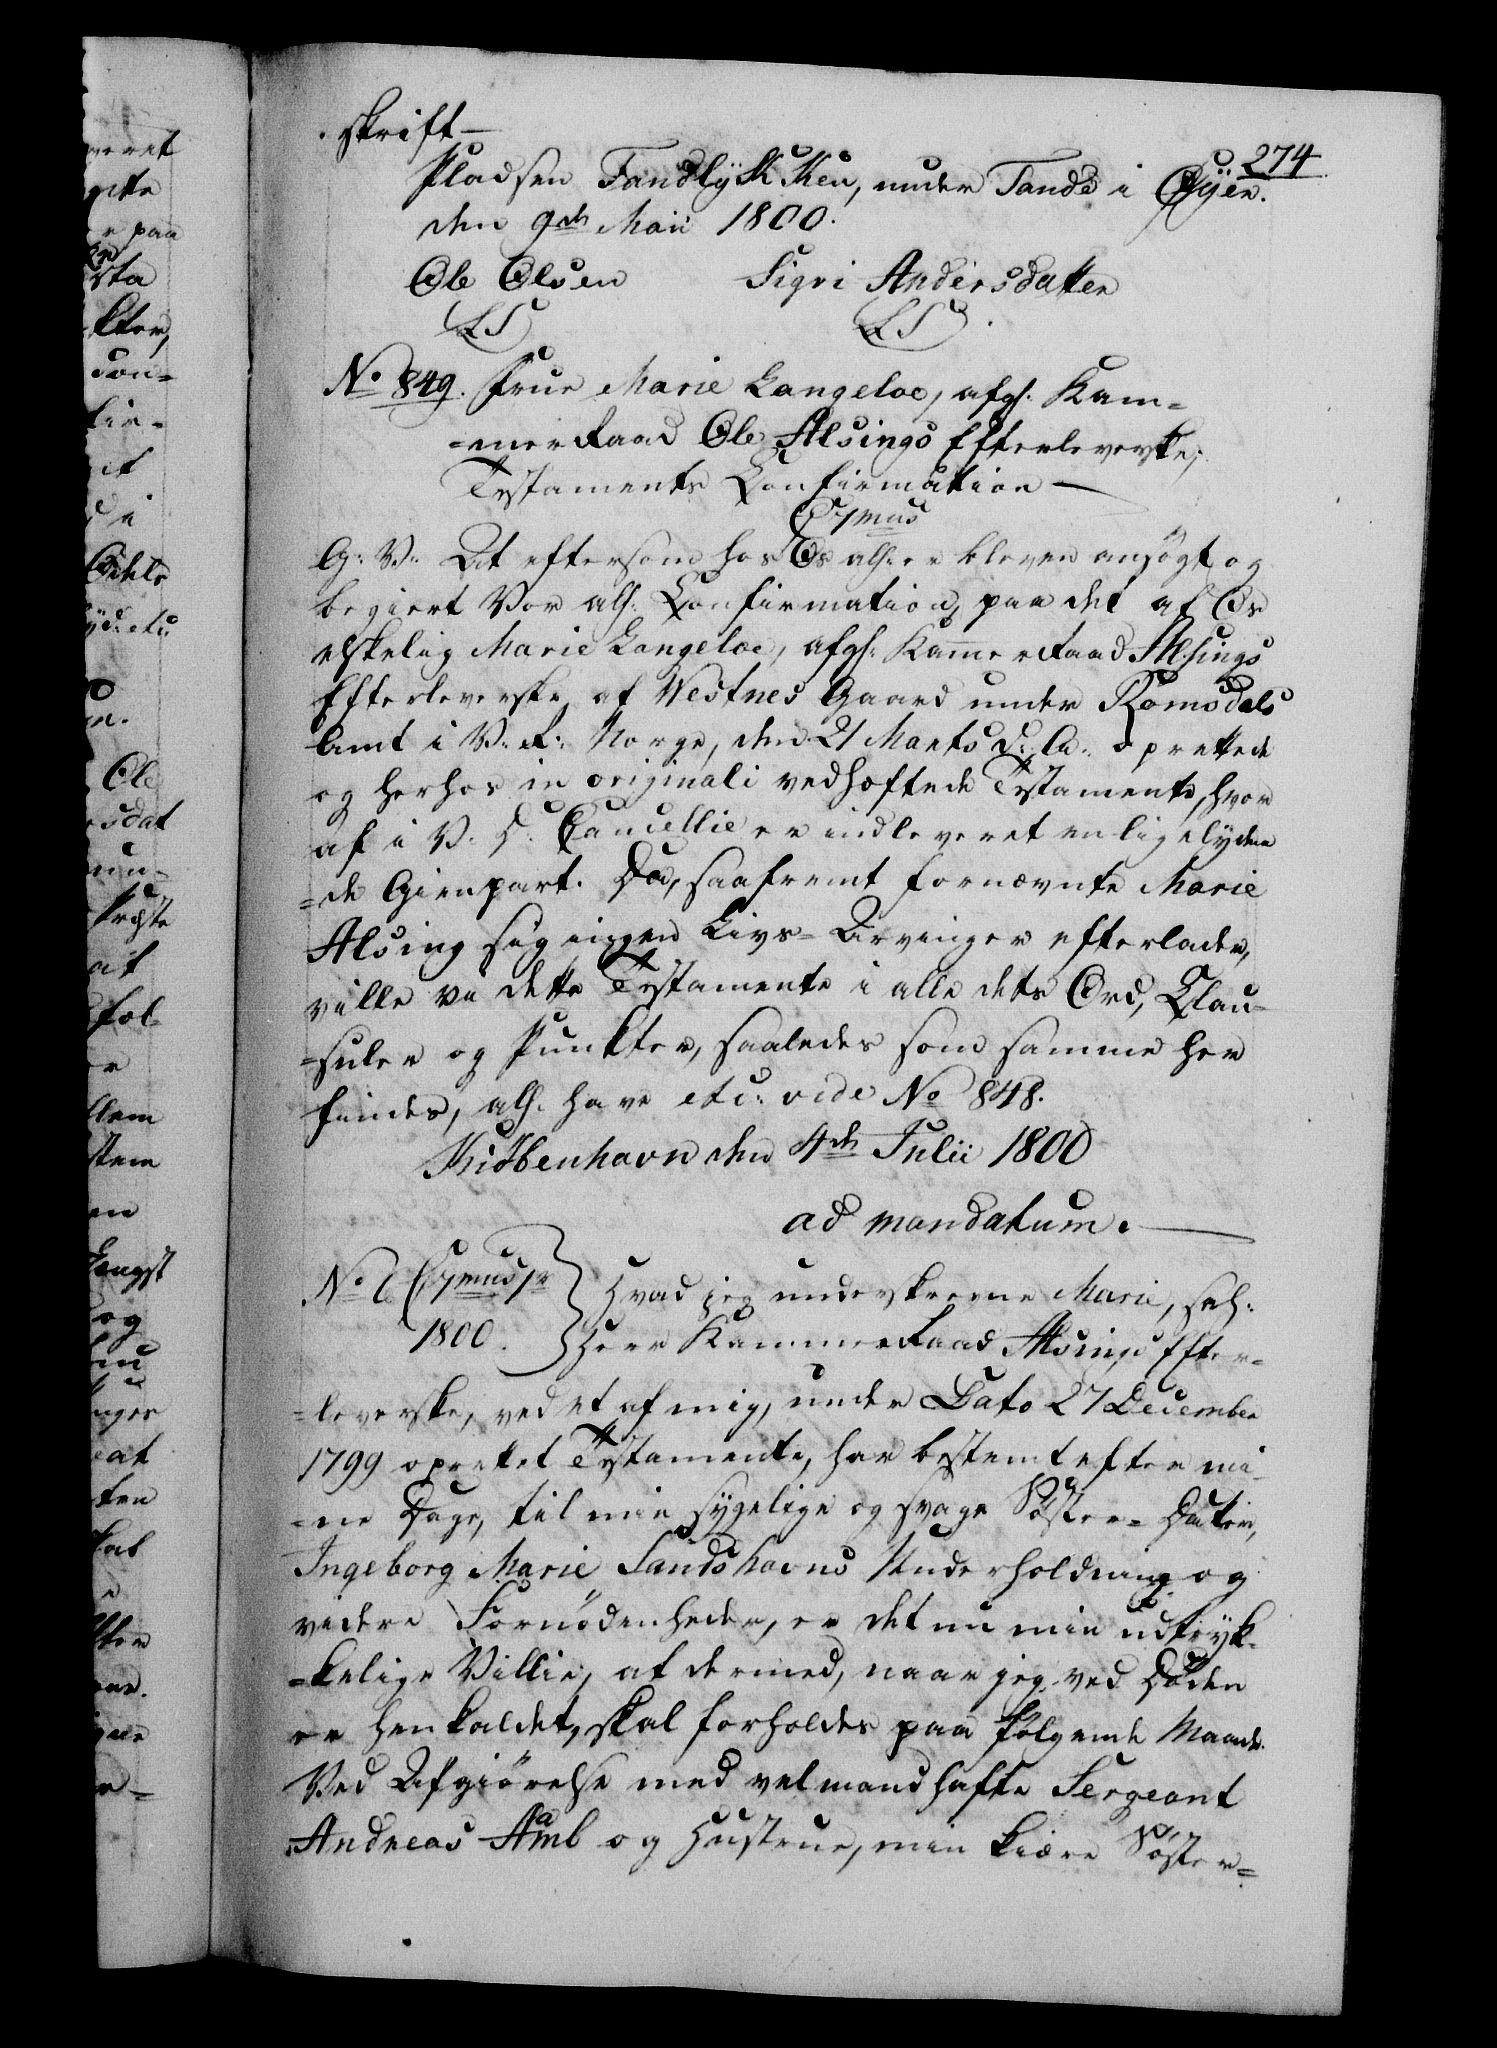 skrift —
274
Pladsen Tandlykken, under Tande i Öyer.
den 9de Maii 1800.
Ole Olsen Sigri Andersdatter
LS LS
No 849. Frue Marie Langeloe, afgl. Kam=
=merRaad Ole Alsings Efterleverske,
Testaments Confirmation —
G: V: At eftersom hos Os allr. er bleven ansøgt og
begiert Vor all. Confirmation, paa det af Os
elskelig Marie Langeloe, afgl. KammerRaad Alsings
Efterleverske af Westnes Gaard under Romsdals
Amt i V: R: Norge, den 21 Marts d: A: oprettede
og herhos in originali vedhæftede Testamente, hvor
af i V. D. Cancellie er indleveret en ligelyden
=de Gienpart. Da, saafremt fornævnte Marie
Alsing sig ingen Livs-Arvinger efterlader,
ville vi dette Testamente i alle dets Ord, Clau-
=suler og Punkter, saaledes som samme her
findes, all. have etc: vide No 848.
Kiøbenhavn den 4de Julii 1800
ad mandatum. —
1800. Herr KammerRaad Alsings Efter=
=leverske, ved et af mig, under Dato 27 December
1799 oprettet Testamente, har bestemt efter mi
=ne Dage, til min sygelige og svage Søster-Datter,
Ingeborg Marie Sandshavns Underholdning og
videre Fornødenheder, er det nu min udtryk-
=kelige Villie, at dermed, naar jeg ved Døden
er henkaldet, skal forholdes paa følgende Maade.
Ved Afgiørelse med velmandhafte Sergeant
Andreas Aamb og Hustrue, min kiære Søster=